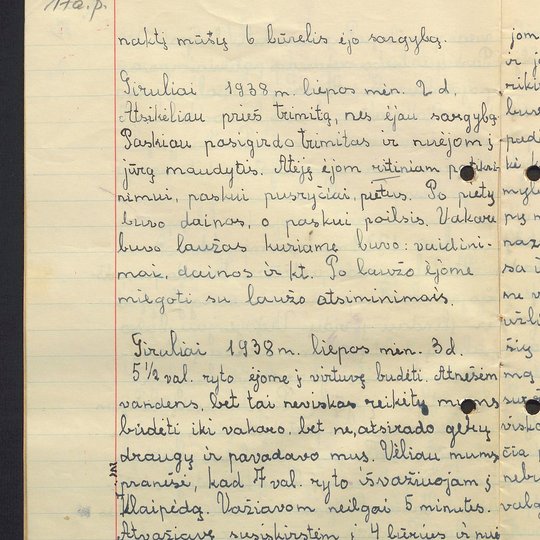 17a.p.
naktį mūsų 6 būrelis ėjo sargybą.
Giruliai 1938 m. liepos mėn. 2 d.
Atsikėliau prieš trimitą, nes ėjau sargybą.
Paskiau pasigirdo trimitas ir nuėjom į
jūrą maudytis. Atėję ėjom ritiniam patikri-
nimui, paskui pusryčiai, pietus. Po pietų
buvo dainos, o paskui poilsis. Vakare
buvo laužas kuriame buvo: vaidini-
mai, dainos ir kt. Po laužo ėjome
miegoti su laužo atsiminimais.
Giruliai 1938 m. liepos mėn. 3 d.
5 1/2 val. ryto ėjome į virtuvę budėti. Atnešėm
vandens, bet tai neviskas reikėtų mums
būdėti iki vakaro, bet ne, atsirado gerų
draugų ir pavadavo mus. Vėliau mums
pranešė, kad 7 val. ryto išvažiuojam į
Klaipėdą. Važiavom neilgai 5 minutes.
Atvažiavę susiskirstėm į 4 būrius ir